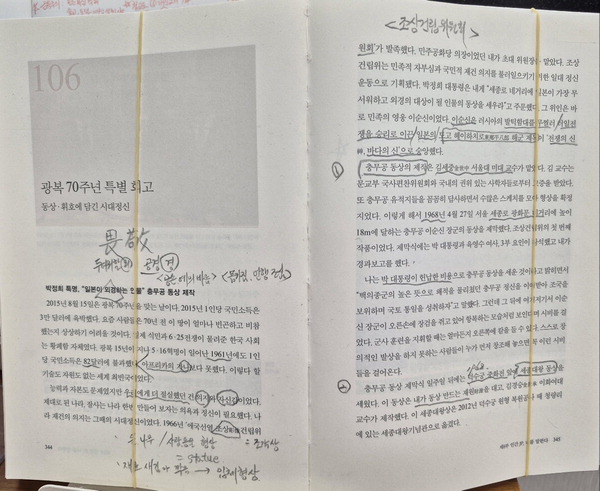 106
광복 70주년 특별 회고
동상·휘호에 담긴 시대정신
畏敬
공경(경)
박정희 특명, “일본이 외경하는 인물” 충무공 동상 제작
2015년 8월 15일은 광복 70주년을 맞는 날이다. 2015년 1인당 국민소득은
3만 달러에 육박했다. 요즘 사람들은 70년 전 이 땅이 얼마나 빈곤하고 비참
했는지 상상하기 어려울 것이다. 일제 식민과 6·25전쟁이 몰려온 한국 사회
는 황폐함 자체였다. 광복 15년이 지나 5·16혁명이 일어난 1961년에도 1인
당 국민소득은 82달러에 불과했다. 아프리카의 가나보다 못했다. 이렇다 할
기술도 자원도 없는 세계 최빈국이었다.
능력과 자본도 문제였지만 우리에게 더 절실했던 건 의지와 자신감이었다.
제대로 된 나라, 잘사는 나라 한번 만들어 보자는 의욕과 정신이 필요했다. 나
라 재건의 의지는 그때의 시대정신이었다. 1966년 ‘애국선열 조상건립위원
344
= statue
<조상건립위원회>
원회’가 발족했다. 민주공화당 의장이었던 내가 초대 위원장을 맡았다. 조상
건립위는 민족적 자부심과 국민적 재건 의지를 불러일으키기 위한 일대 정신
운동으로 기획됐다. 박정희 대통령은 내게 “세종로 네거리에 일본이 가장 무
서워하고 외경의 대상이 될 인물의 동상을 세우라”고 주문했다. 그 위인은 바
로 민족의 영웅 이순신이었다. 이순신을 러시아의 발틱함대를 무찔러 러일전
쟁을 승리로 이끈 일본의 도고 헤이하치로東鄕平八郎 해군 제독이 ‘전쟁의 신
神, 바다의 신’으로 숭앙했다.
충무공 동상의 제작은 김세중金世中 서울대 미대 교수가 맡았다. 김 교수는
문교부 국사편찬위원회와 국내의 권위 있는 사학자들로부터 고증을 받았다.
또 충무공 유적지들을 꼼꼼히 답사하면서 수많은 스케치를 모아 형상을 확정
지었다. 이렇게 해서 1968년 4월 27일 서울 세종로 광화문 네거리에 높이
18m에 달하는 충무공 이순신 장군의 동상을 제작했다. 조상건립위의 첫 번째
작품이었다. 제막식에는 박 대통령과 육영수 여사, 3부 요인이 참석했고 내가
경과보고를 했다.
나는 박 대통령이 헌납한 비용으로 충무공 동상을 세운 것이라고 밝히면서
“백의종군의 높은 뜻으로 왜적을 물리쳤던 충무공 정신을 이어받아 조국을
보위하며 국토 통일을 성취하자”고 말했다. 그런데 그 뒤에 여기저기서 이순
신 장군이 오른손에 장검을 쥐고 있어 항복하는 모습처럼 보인다며 시비를 걸
었다. 군사 훈련을 지휘할 때는 알아든지 오른쪽에 칼을 들 수 있다. 스스로 창
의적인 발상을 하지 못하는 사람들이 누가 먼저 창조해 놓으면 꼭 이런 시비
들을 걸어온다.
충무공 동상 제막식 일주일 뒤에는 덕수궁 중화전 앞에 세종대왕 동상을
세웠다. 이 동상은 내가 동상 만드는 재원財源을 대고 김경승金景承 이화여대
교수가 제작했다. 이 세종대왕상은 2012년 덕수궁 원형 복원공사 때 청량리
에 있는 세종대왕기념관으로 옮겼다.
345